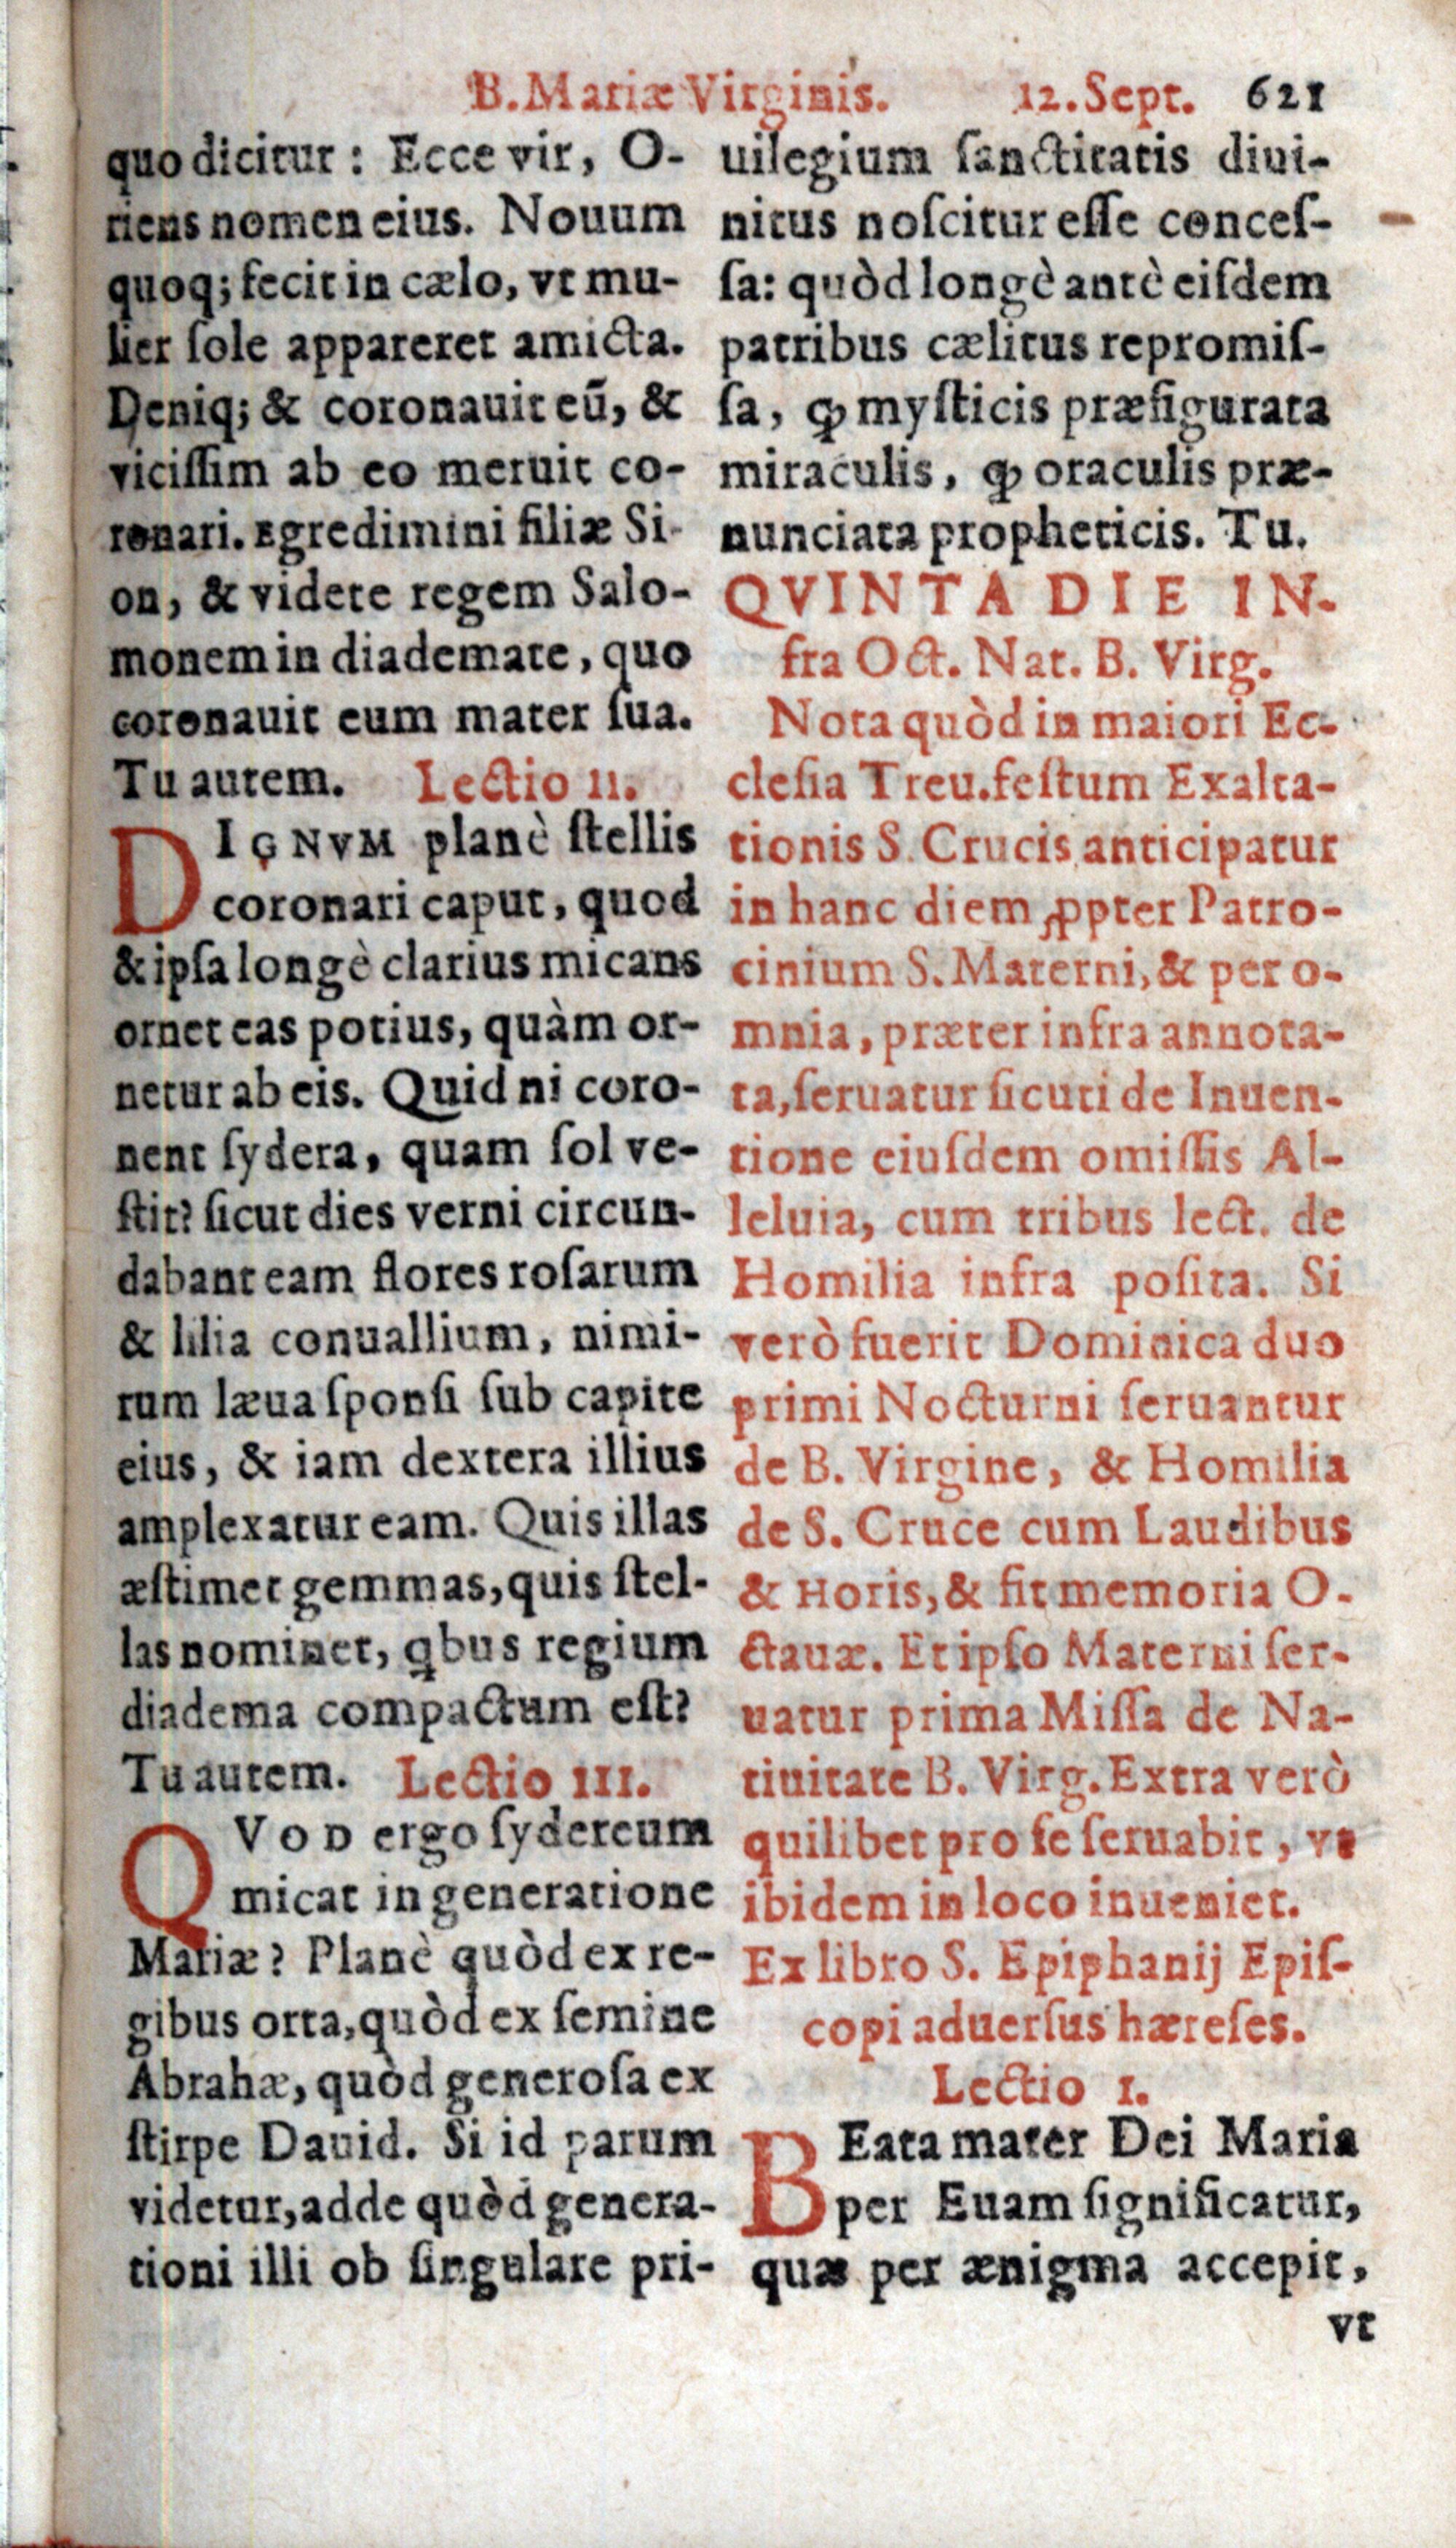 B. Mariæ Virginis. 12. Sept. 621
quo dicitur : Ecce vir, O-
riens nomen eius. Nouum
quoq; fecit in cælo, vt mu-
lier ſole appareret amicta.
Deniq; & coronauit eū, &
viciſſim ab eo meruit co-
ronari. Egredimini filiæ Si-
on, & videte regem Salo-
monem in diademate, quo
coronauit eum mater ſua.
Tu autem. Lectio II.
DIGNVM planè ſtellis
coronari caput, quod
& ipſa longè clarius micans
ornet eas potius, quàm or-
netur ab eis. Quid ni coro-
nent ſydera, quam ſol ve-
ſtit? ſicut dies verni circun-
dabant eam flores roſarum
& lilia conuallium, nimi-
rum læua ſponſi ſub capite
eius, & iam dextera illius
amplexatur eam. Quis illas
æſtimet gemmas, quis ſtel-
las nominet, qbus regium
diadema compactum eſt?
Tu autem. Lectio III.
QVOD ergo ſydereum
micat in generatione
Mariæ? Planè quòd ex re-
gibus orta, quòd ex ſemine
Abrahæ, quòd generoſa ex
ſtirpe Dauid. Si id parum
videtur, adde quòd genera-
tioni illi ob ſingulare pri-
uilegium ſanctitatis diui-
nitus noſcitur eſſe conceſ-
ſa: quòd longè antè eiſdem
patribus cælitus repromiſ-
ſa, ꝙ myſticis præfigurata
miraculis, ꝙ oraculis præ-
nunciata propheticis. Tu.
QVINTA DIE IN-
fra Oct. Nat. B. Virg.
Nota quòd in maiori Ec-
cleſia Treu. feſtum Exalta-
tionis S. Crucis anticipatur
in hanc diem ꝓpter Patro-
cinium S. Materni, & per o-
mnia, præter infra annota-
ta, ſeruatur ſicuti de Inuen-
tione eiuſdem omiſſis Al-
leluia, cum tribus lect. de
Homilia infra poſita. Si
verò fuerit Dominica duo
primi Nocturni ſeruantur
de B. Virgine, & Homilia
de S. Cruce cum Laudibus
& Horis, & fit memoria O-
ctauæ. Et ipſo Materni ſer-
uatur prima Miſſa de Na-
tiuitate B. Virg. Extra verò
quilibet pro ſe ſeruabit, vt
ibidem in loco inueniet.
Ex libro S. Epiphanij Epiſ-
copi aduerſus hæreſes.
Lectio I.
BEata mater Dei Maria
per Euam ſignificatur,
quæ per ænigma accepit,
vt